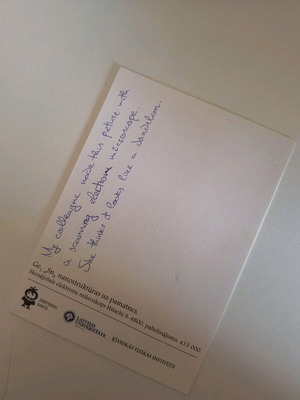 My colleague made this picture with
a scanning electrone microscope.
She thinks it looks like a dandelion.
nanostruktūras uz pamatnes.
Skenējošais elektronu mikroskops Hitachi S-4800, palielinājums x13 000
LATVIJAS
UNIVERSITĀTE
ĶĪMISKĀS FIZIKAS INSTITŪTS